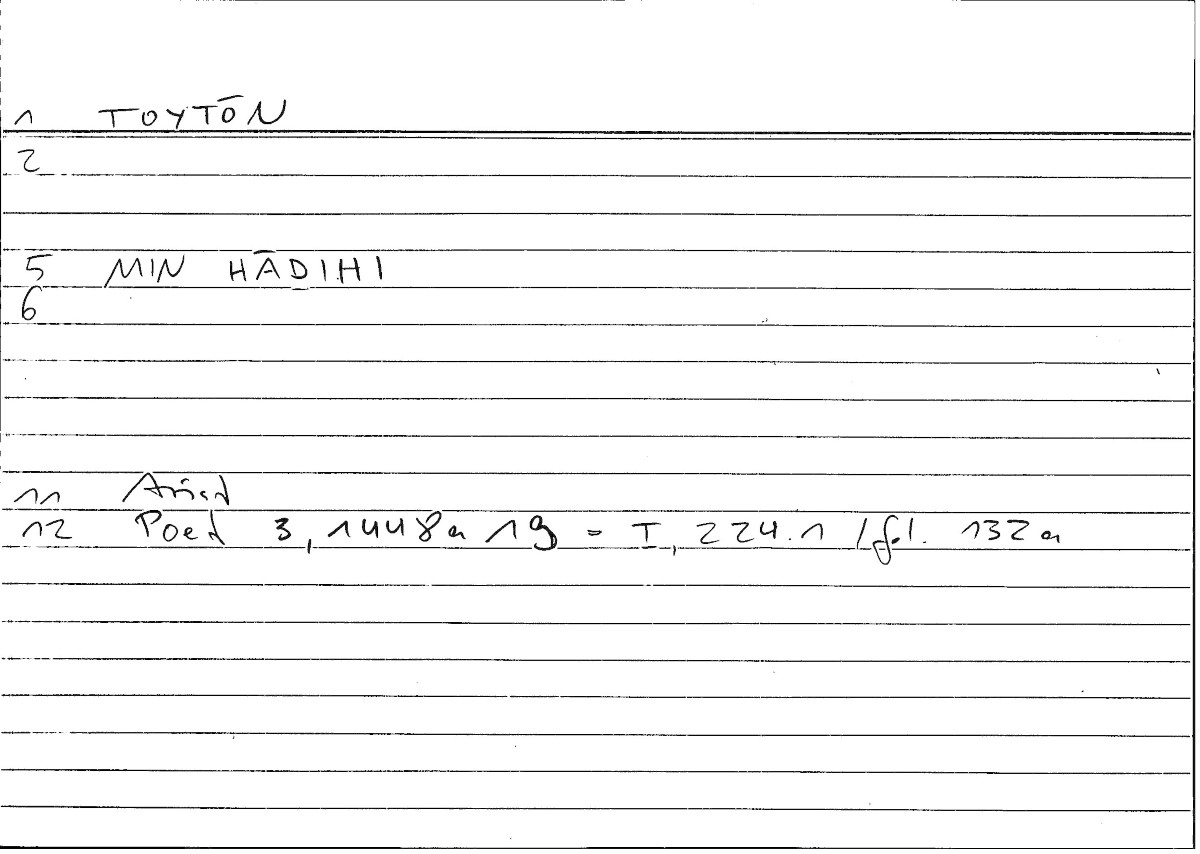 1 TOYTŌN
2
5 MIN HĀḎIHI
6
11 Arist
12 Poet 3, 1448a 19 = I, 224.1 / fol. 132a